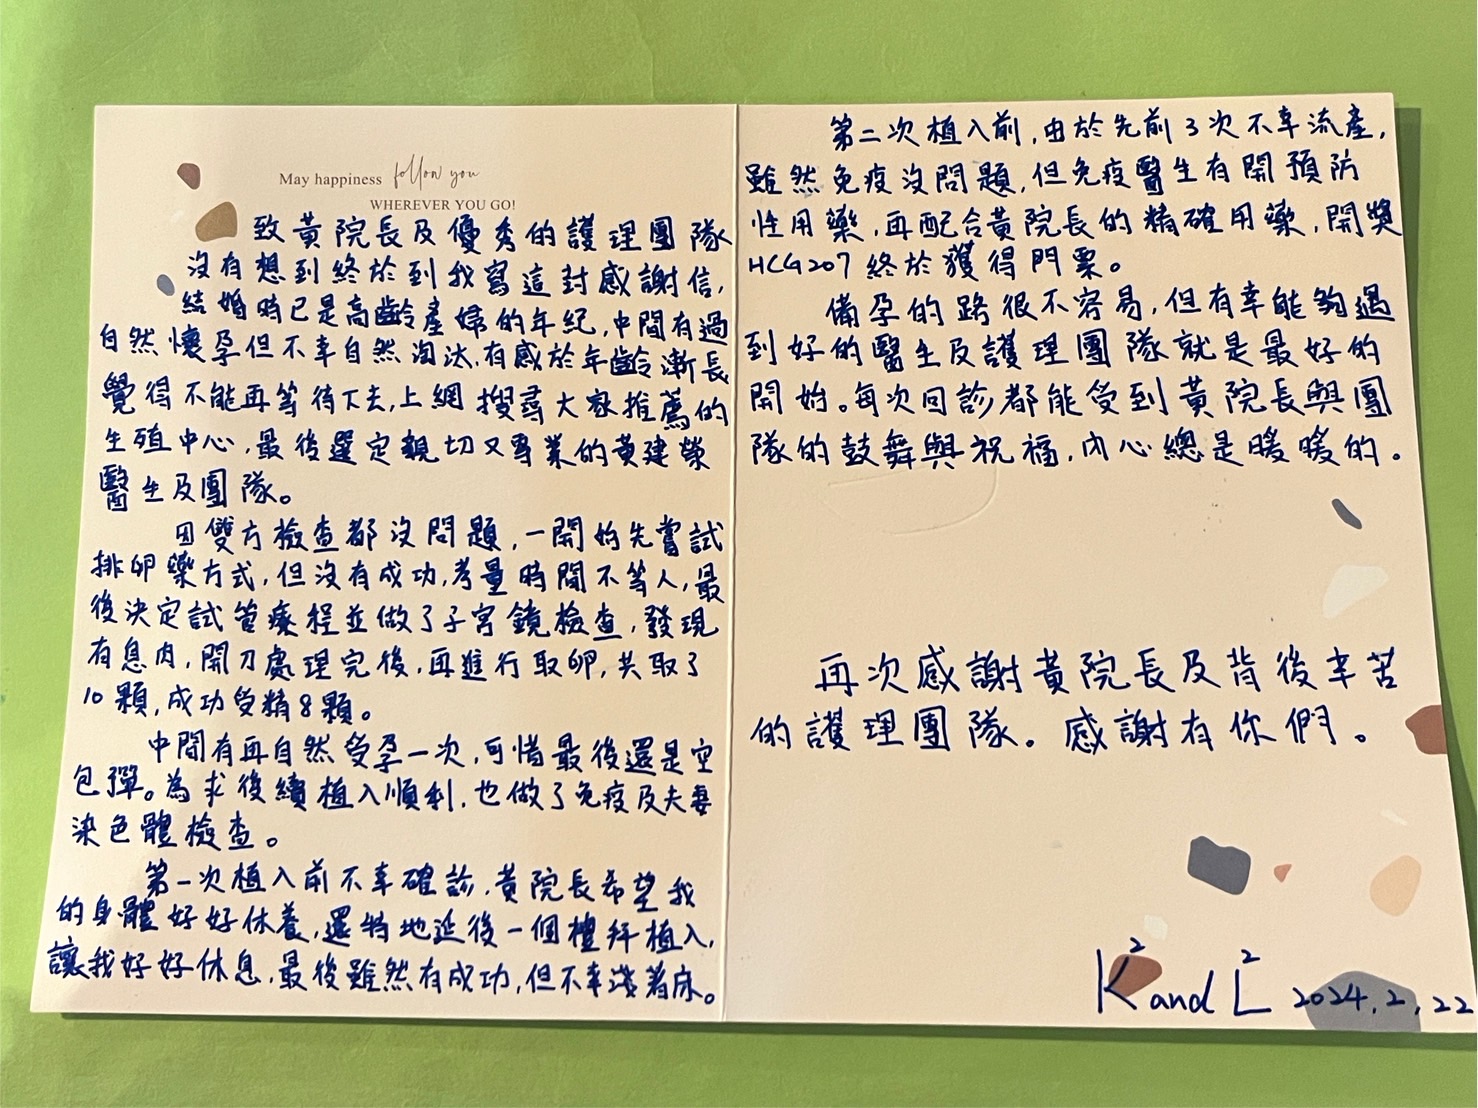 May happiness follow you
WHEREVER YOU GO!
致黃院長及優秀的護理團隊
沒有想到終於到我寫這封感謝信,
結婚時已是高齡產婦的年紀,中間有過
自然懷孕但不幸自然淘汰,有感於年齡漸長
覺得不能再等待下去,上網搜尋大家推薦的
生殖中心,最後選定親切又專業的黃建榮
醫生及團隊。
因雙方檢查都沒問題,一開始先嘗試
排卵藥方式,但沒有成功,考量時間不等人,最
後決定試管療程並做了子宮鏡檢查,發現
有息肉,開刀處理完後,再進行取卵,共取了
10顆,成功受精8顆。
中間有再自然受孕一次,可惜最後還是空
包彈。為求後續植入順利,也做了免疫及夫妻
染色體檢查。
第一次植入前不幸確診,黃院長希望我
的身體好好休養,還特地延後一個禮拜植入,
讓我好好休息,最後雖然有成功,但不幸淺著床。
第二次植入前,由於先前3次不幸流產,
雖然免疫沒問題,但免疫醫生有開預防
性用藥,再配合黃院長的精確用藥,開獎
HCG207終於獲得門票。
備孕的路很不容易,但有幸能夠遇
到好的醫生及護理團隊就是最好的
開始。每次回診都能受到黃院長與團
隊的鼓舞與祝福,內心總是暖暖的。
再次感謝黃院長及背後辛苦
的護理團隊。感謝有你們。
K² and L² 2024.2.22